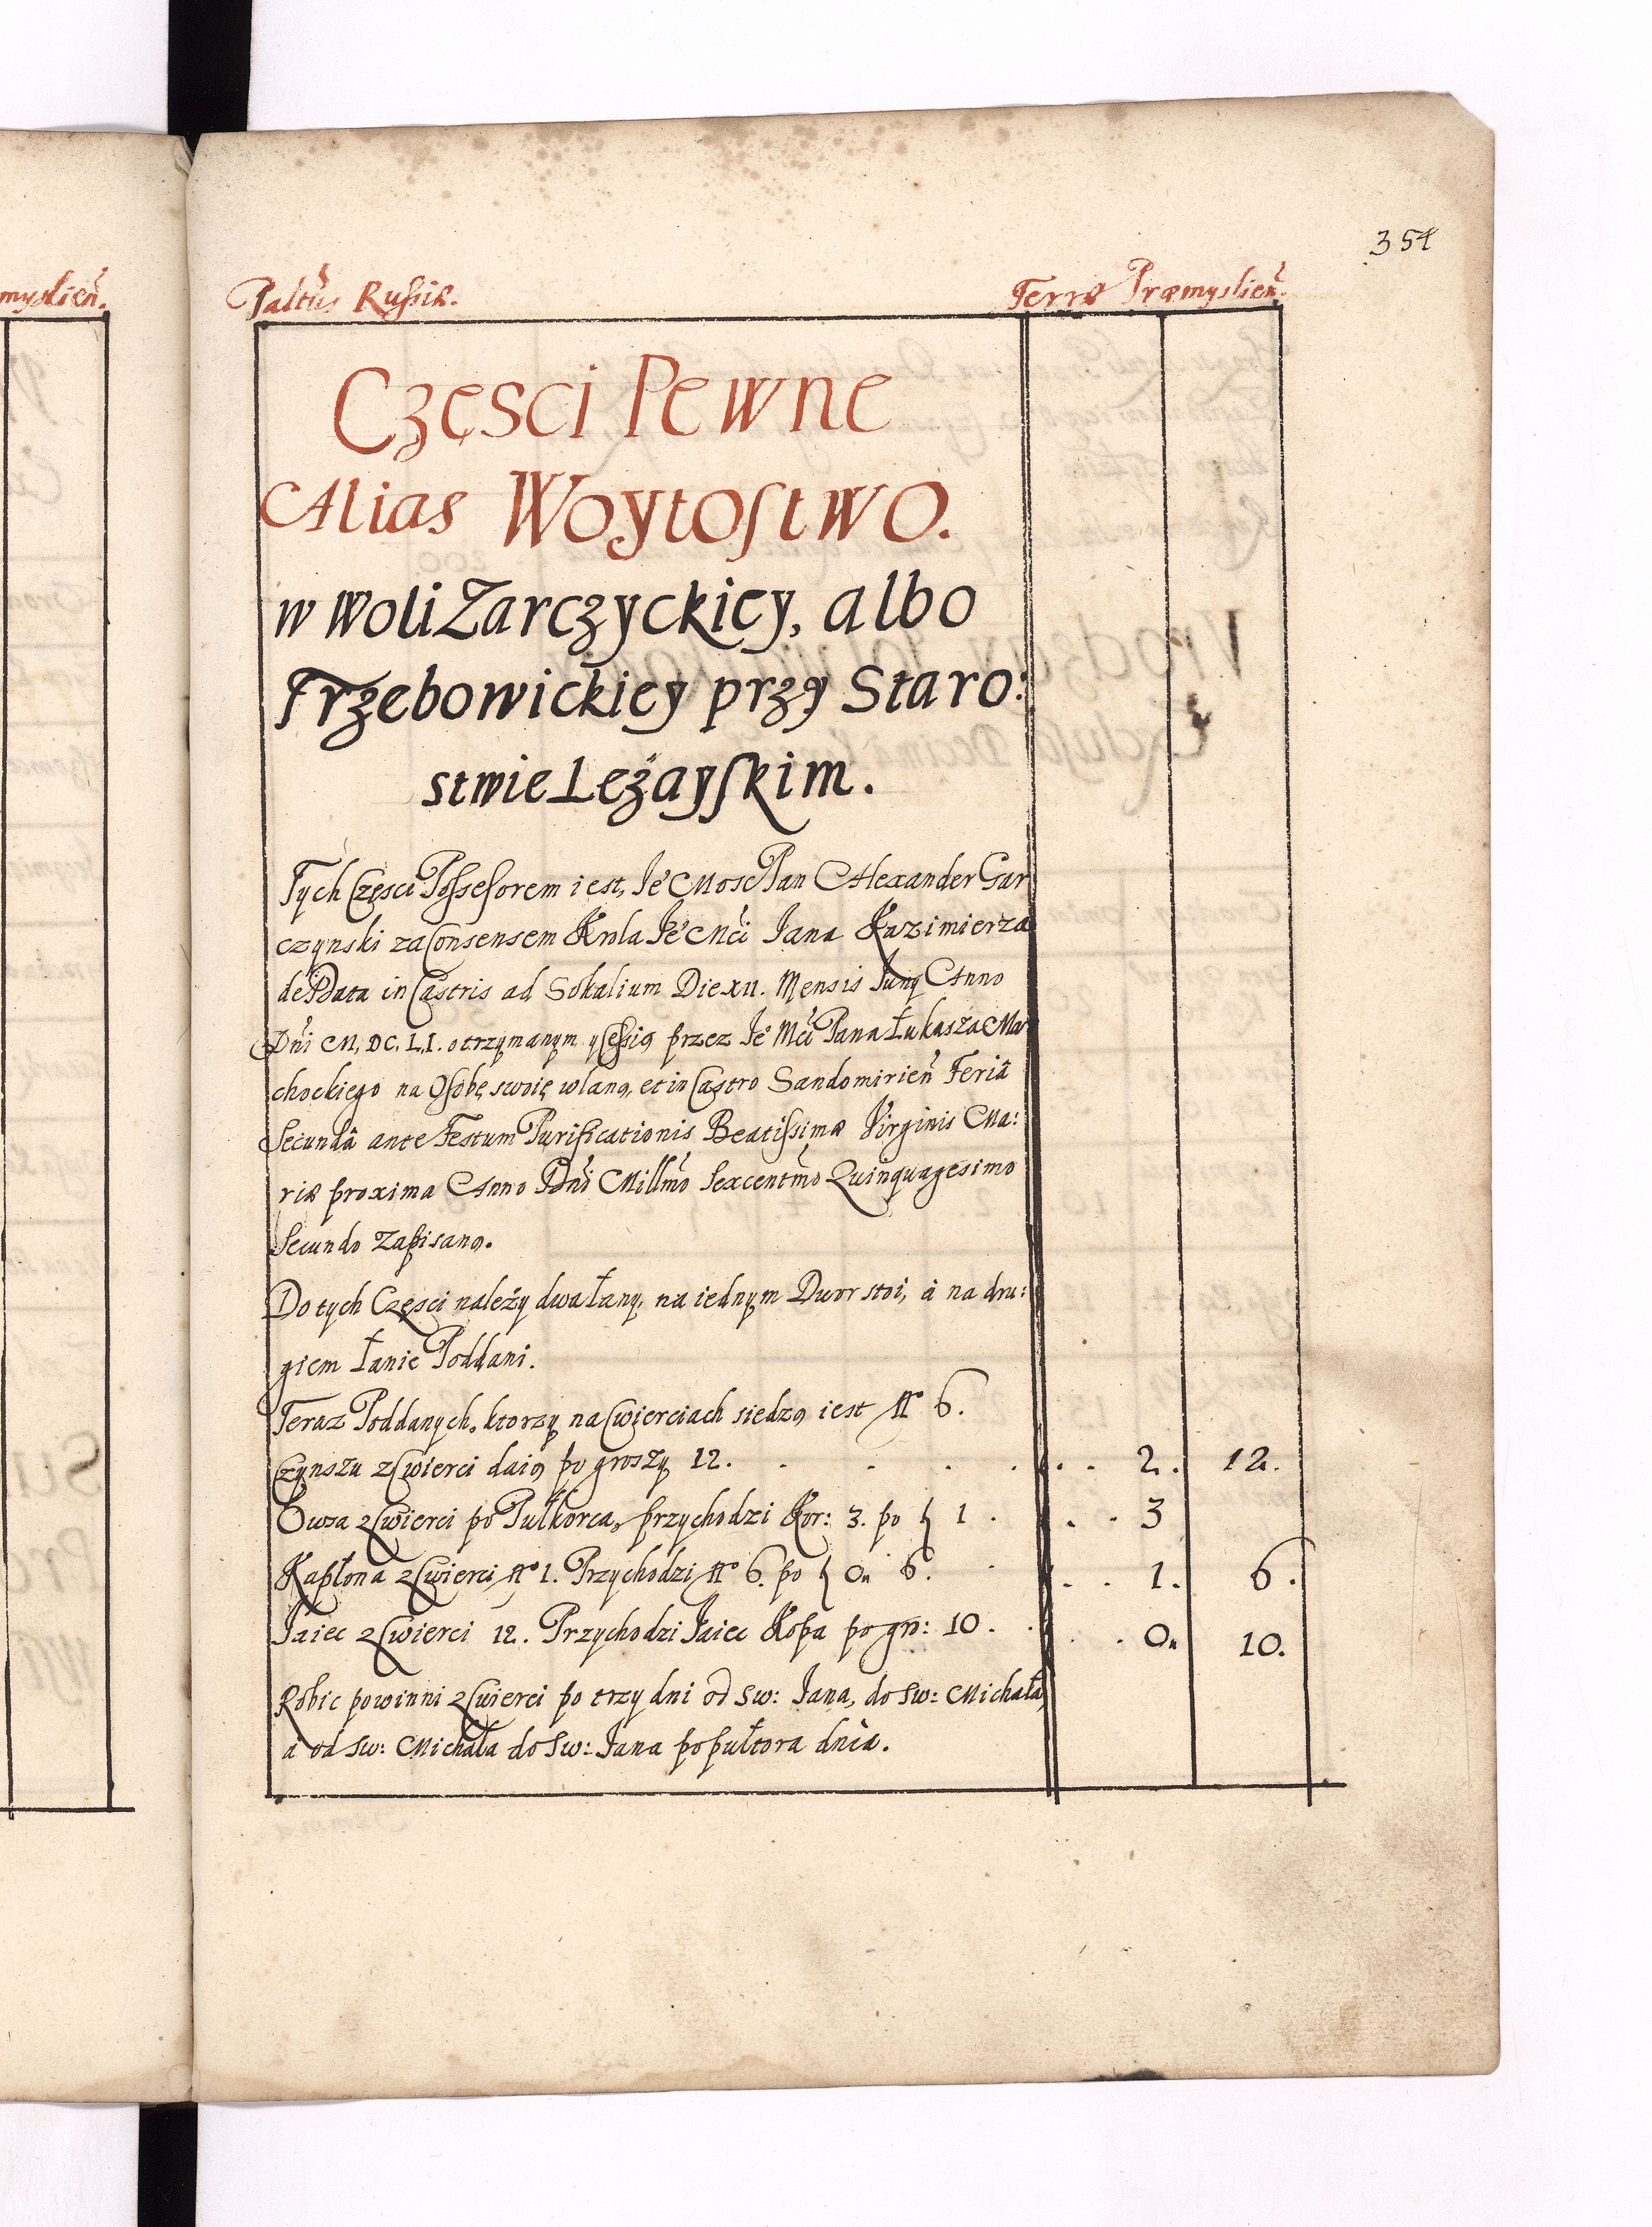 myslień.
354
Paltũs Russiæ.
Terræ Præmyslień.
Częsci Pewne
Alias Woytostwo.
w Woli Zarczyckiey, albo
Trzebowickiey przy Staro:
stwie Leżayskim.
Tych Częsci Possessorem iest, Ie° Mosc Pan Alexander Gar
czynski za Consensem Krola Ie° Mći Jana Kazimierza
de Data in Castris ad Sokalium Die XII. Mensis Iunÿ Anno
Dńi M, DC, L, I. otrzymanym y Cessią przez Ie° Mći Pana Łukasza Ma
chockiego na Osobę swoię wlaną, et in Castro Sandomirień Feriâ
Secundâ ante Festum Purificationis Beatissimæ Virginis Ma:
riæ proxima Anno Dńi Millm̃o Sexcentm̃o Quinquagesimo
Secundo Zapisaną.
Do tych Częsci należy dwa Łany, na iednym Dwor stoi, à na dru:
giem Łanie Poddani.
Teraz Poddanych, ktorzy na Cwierciach siedzą iest N° 6.
Czynszu z Cwierci daią po groszy 12. . . . . . . 2. 12.
Owsa z Cwierci po Pułkorca, przychodzi Kor: 3. po f 1 . . . . 3
Kapłona z Cwierci N° 1. Przychodzi N° 6. po f 0„ 6. . . . . 1. 6.
Jaiec z Cwierci 12. Przychodzi Jaiec Kopa po gro: 10 . . . . 0„ 10.
Robic powinni z Cwierci po trzy dni od Sw: Jana, do Sw: Michała,
a od Sw: Michała do Sw: Jana po pułtora dnia.